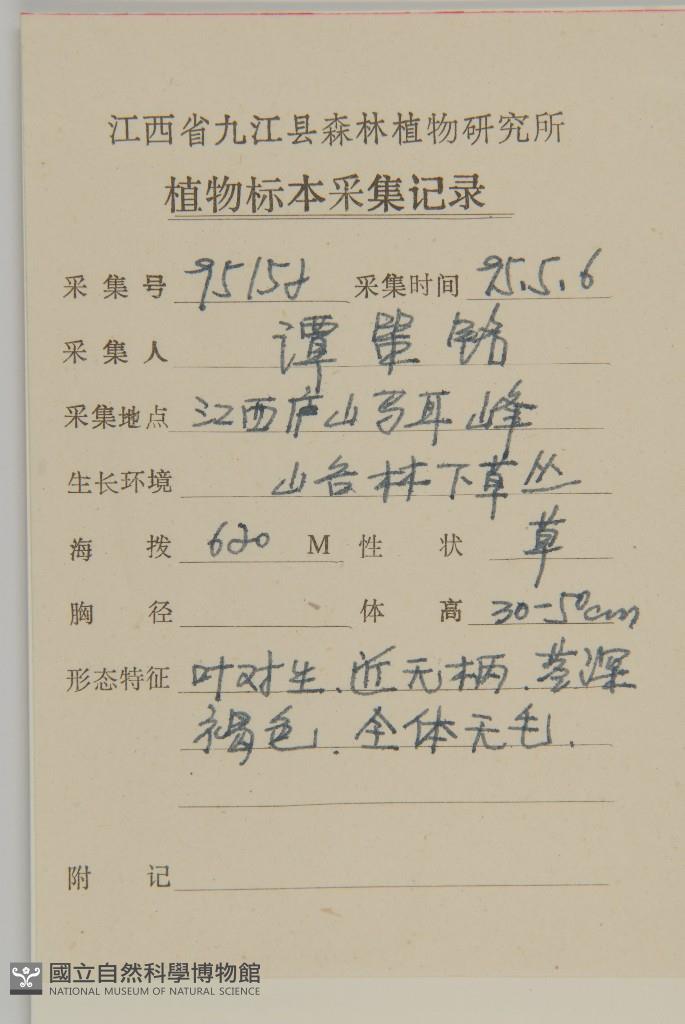 江西省九江县森林植物研究所
植物标本采集记录
采集号 95158 采集时间 95.5.6
采集人 谭策铭
采集地点 江西庐山马耳峰
生长环境 山谷林下草丛
海拨 620 M 性状 草
胸径 体高 30-50cm
形态特征 叶对生.近无柄.茎深
褐色.全体无毛.
附记
國立自然科學博物館
NATIONAL MUSEUM OF NATURAL SCIENCE